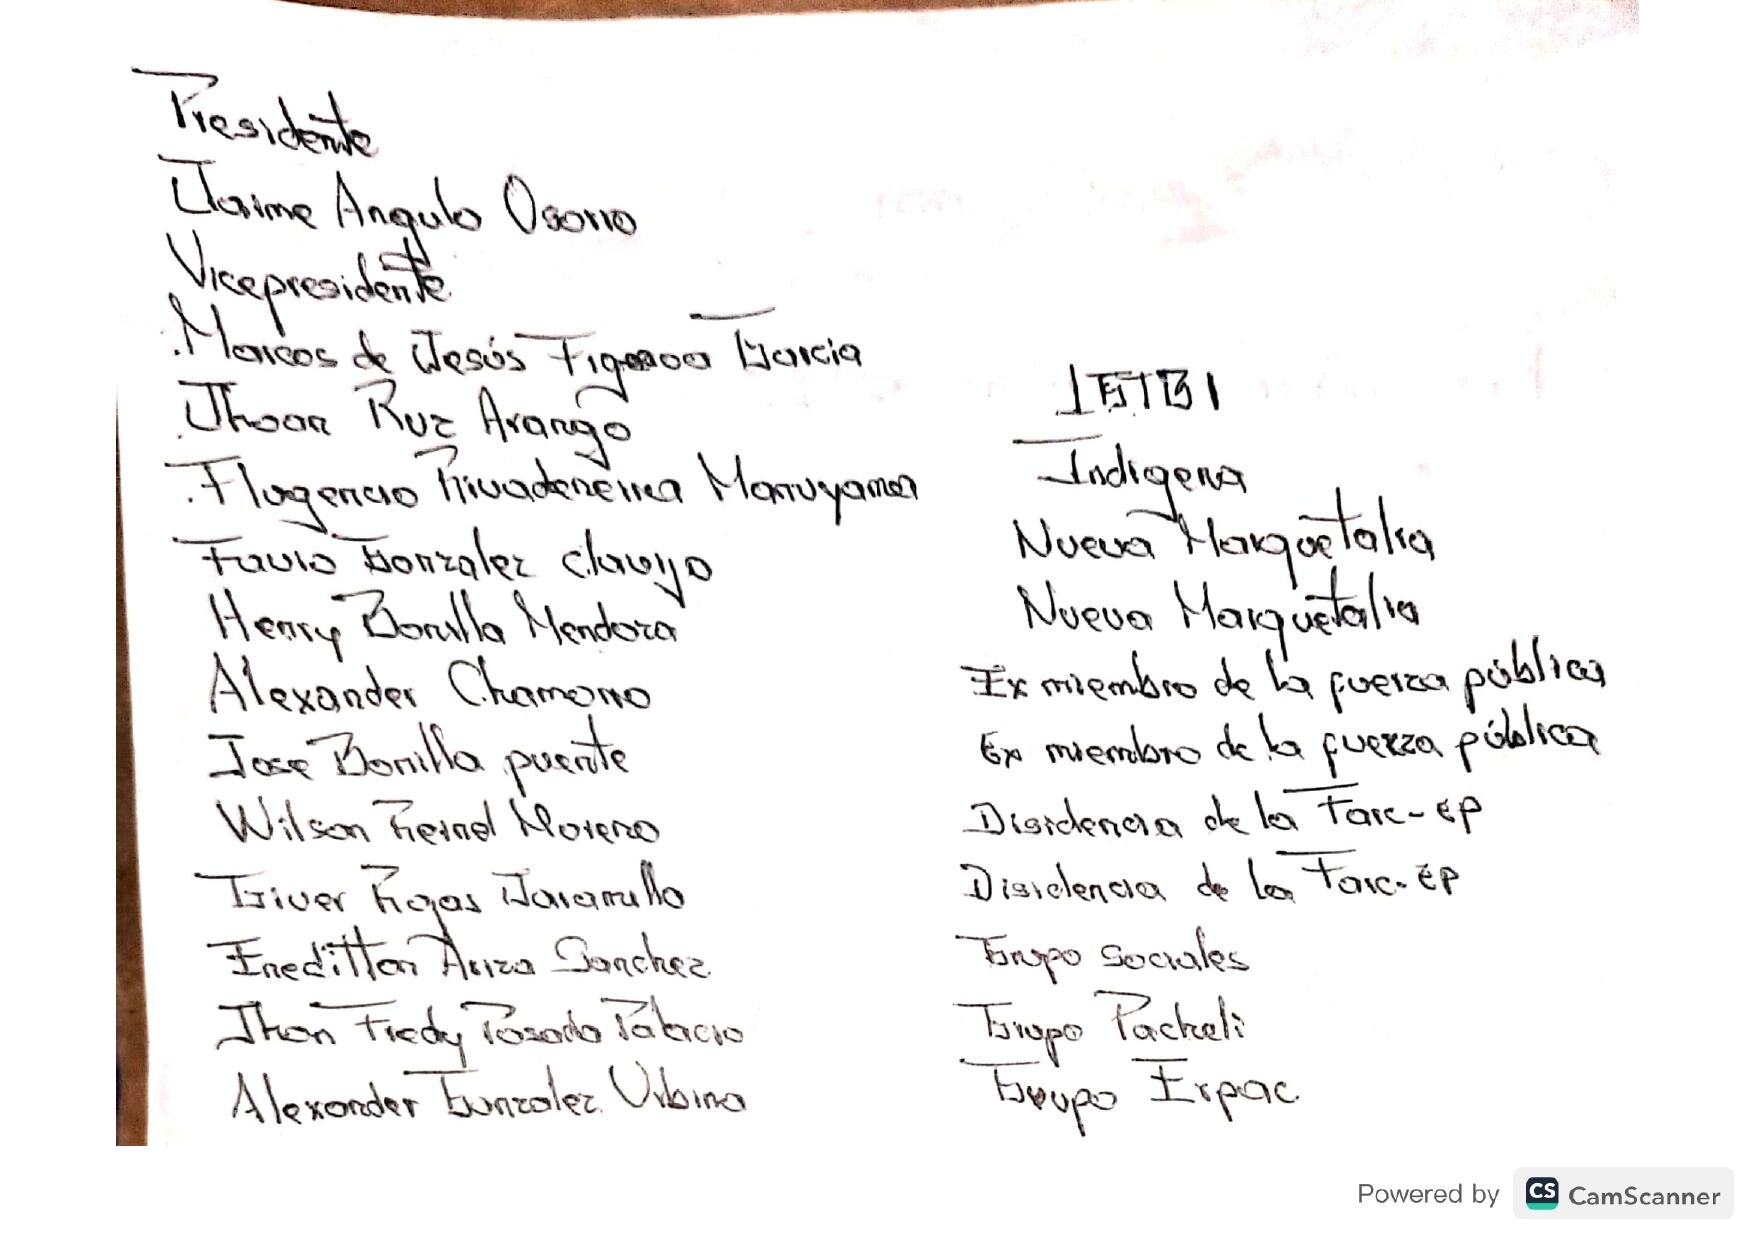 Presidente
Jaime Angulo Osorio
Vicepresidente
Marcos de Jesús Figueroa Garcia
Jhoan Ruz Arango LGTBI
Flugencio Rivadeneira Manuyama Indigena
Favio Gonzalez clavijo Nueva Marquetalia
Henry Bonilla Mendoza Nueva Marquetalia
Alexander Chamorro Ex miembro de la fuerza pública
Jose Bonilla puente Ex miembro de la fuerza pública
Wilson Reinel Moreno Disidencia de la Farc-ep
Giver Rojas Jaramillo Disidencia de la Farc-ep
Eneditton Ariza Sanchez Grupo Sociales
Jhon Fredy Posada Palacio Grupo Pacheli
Alexander Gonzalez Urbina Grupo Erpac
Powered by CS CamScanner